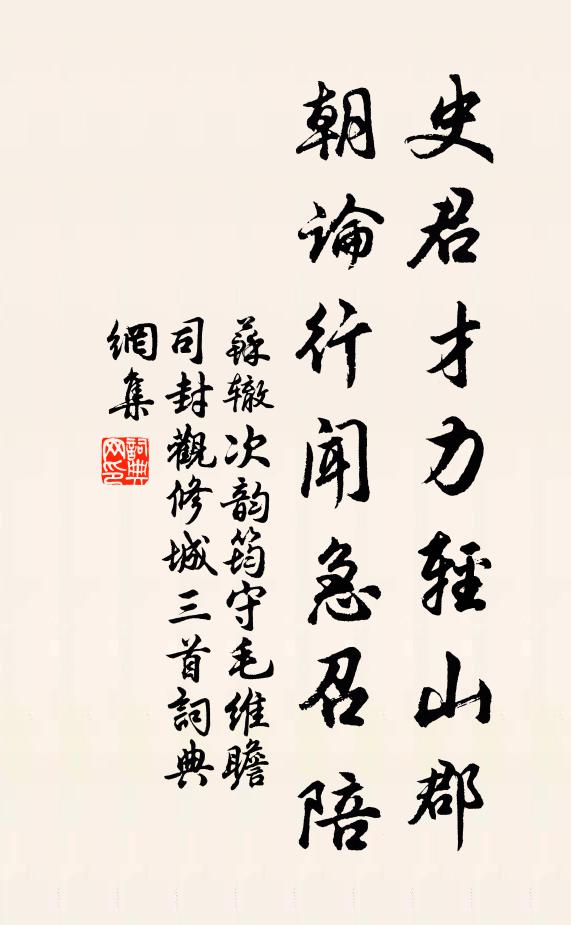 史君才力輕山郡
朝論行聞急召陪
蘇辙次韵筠守毛维瞻
司封觀修城三首詞典
網集
詞典网印